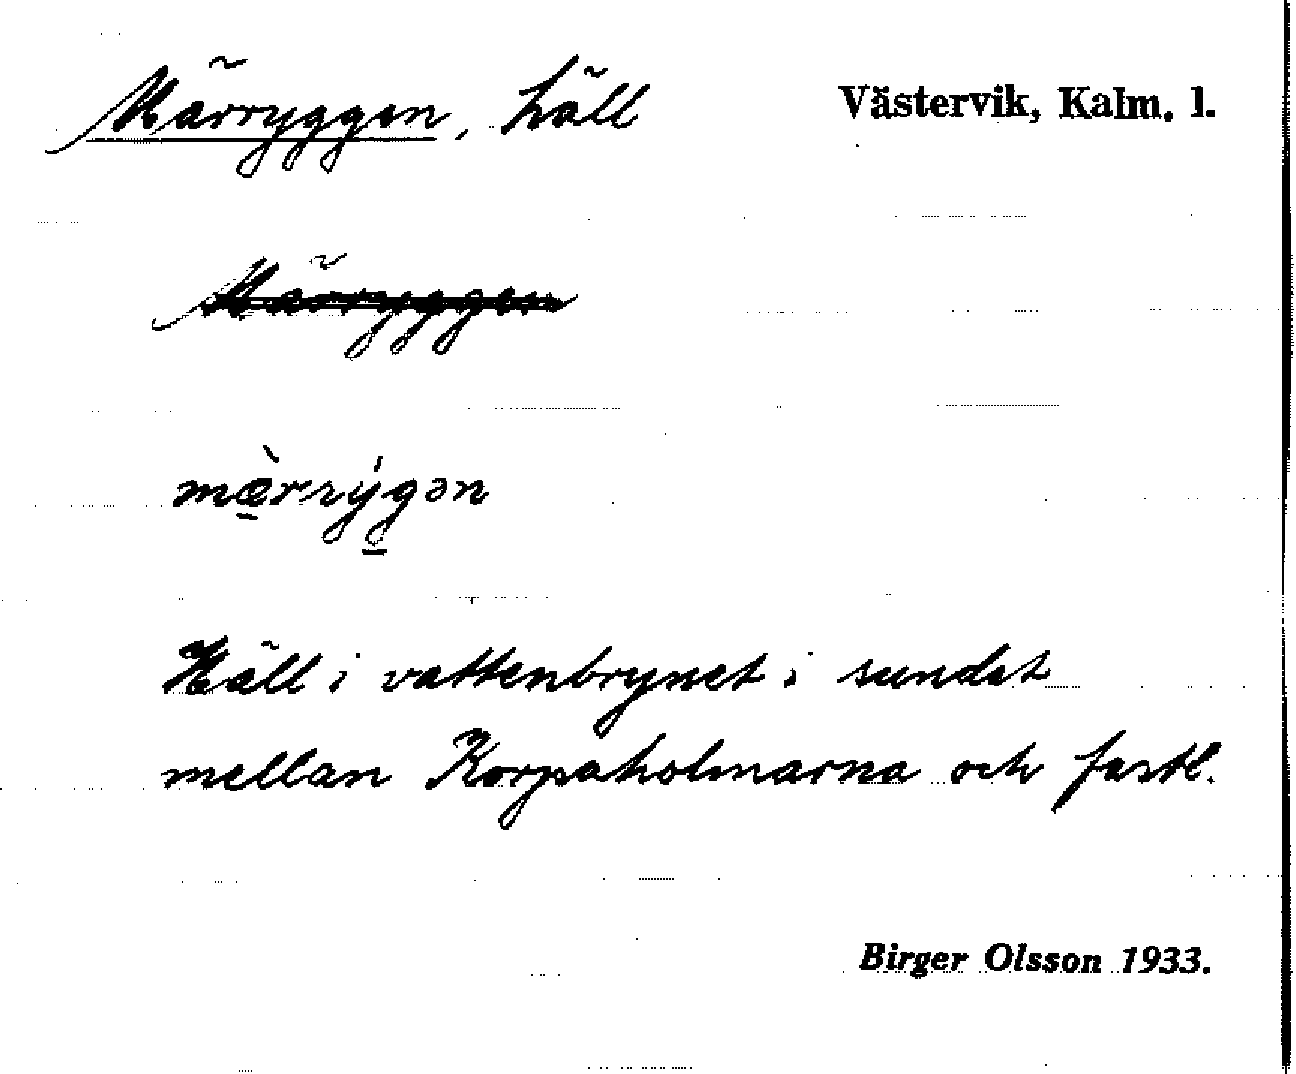 Märryggen, häll
Västervik, Kalm. l.
Märryggen
mæ̀rrýgən
Häll i vattenbrynet i sundet
mellan Korpaholmarna och fastl.
Birger Olsson 1933.